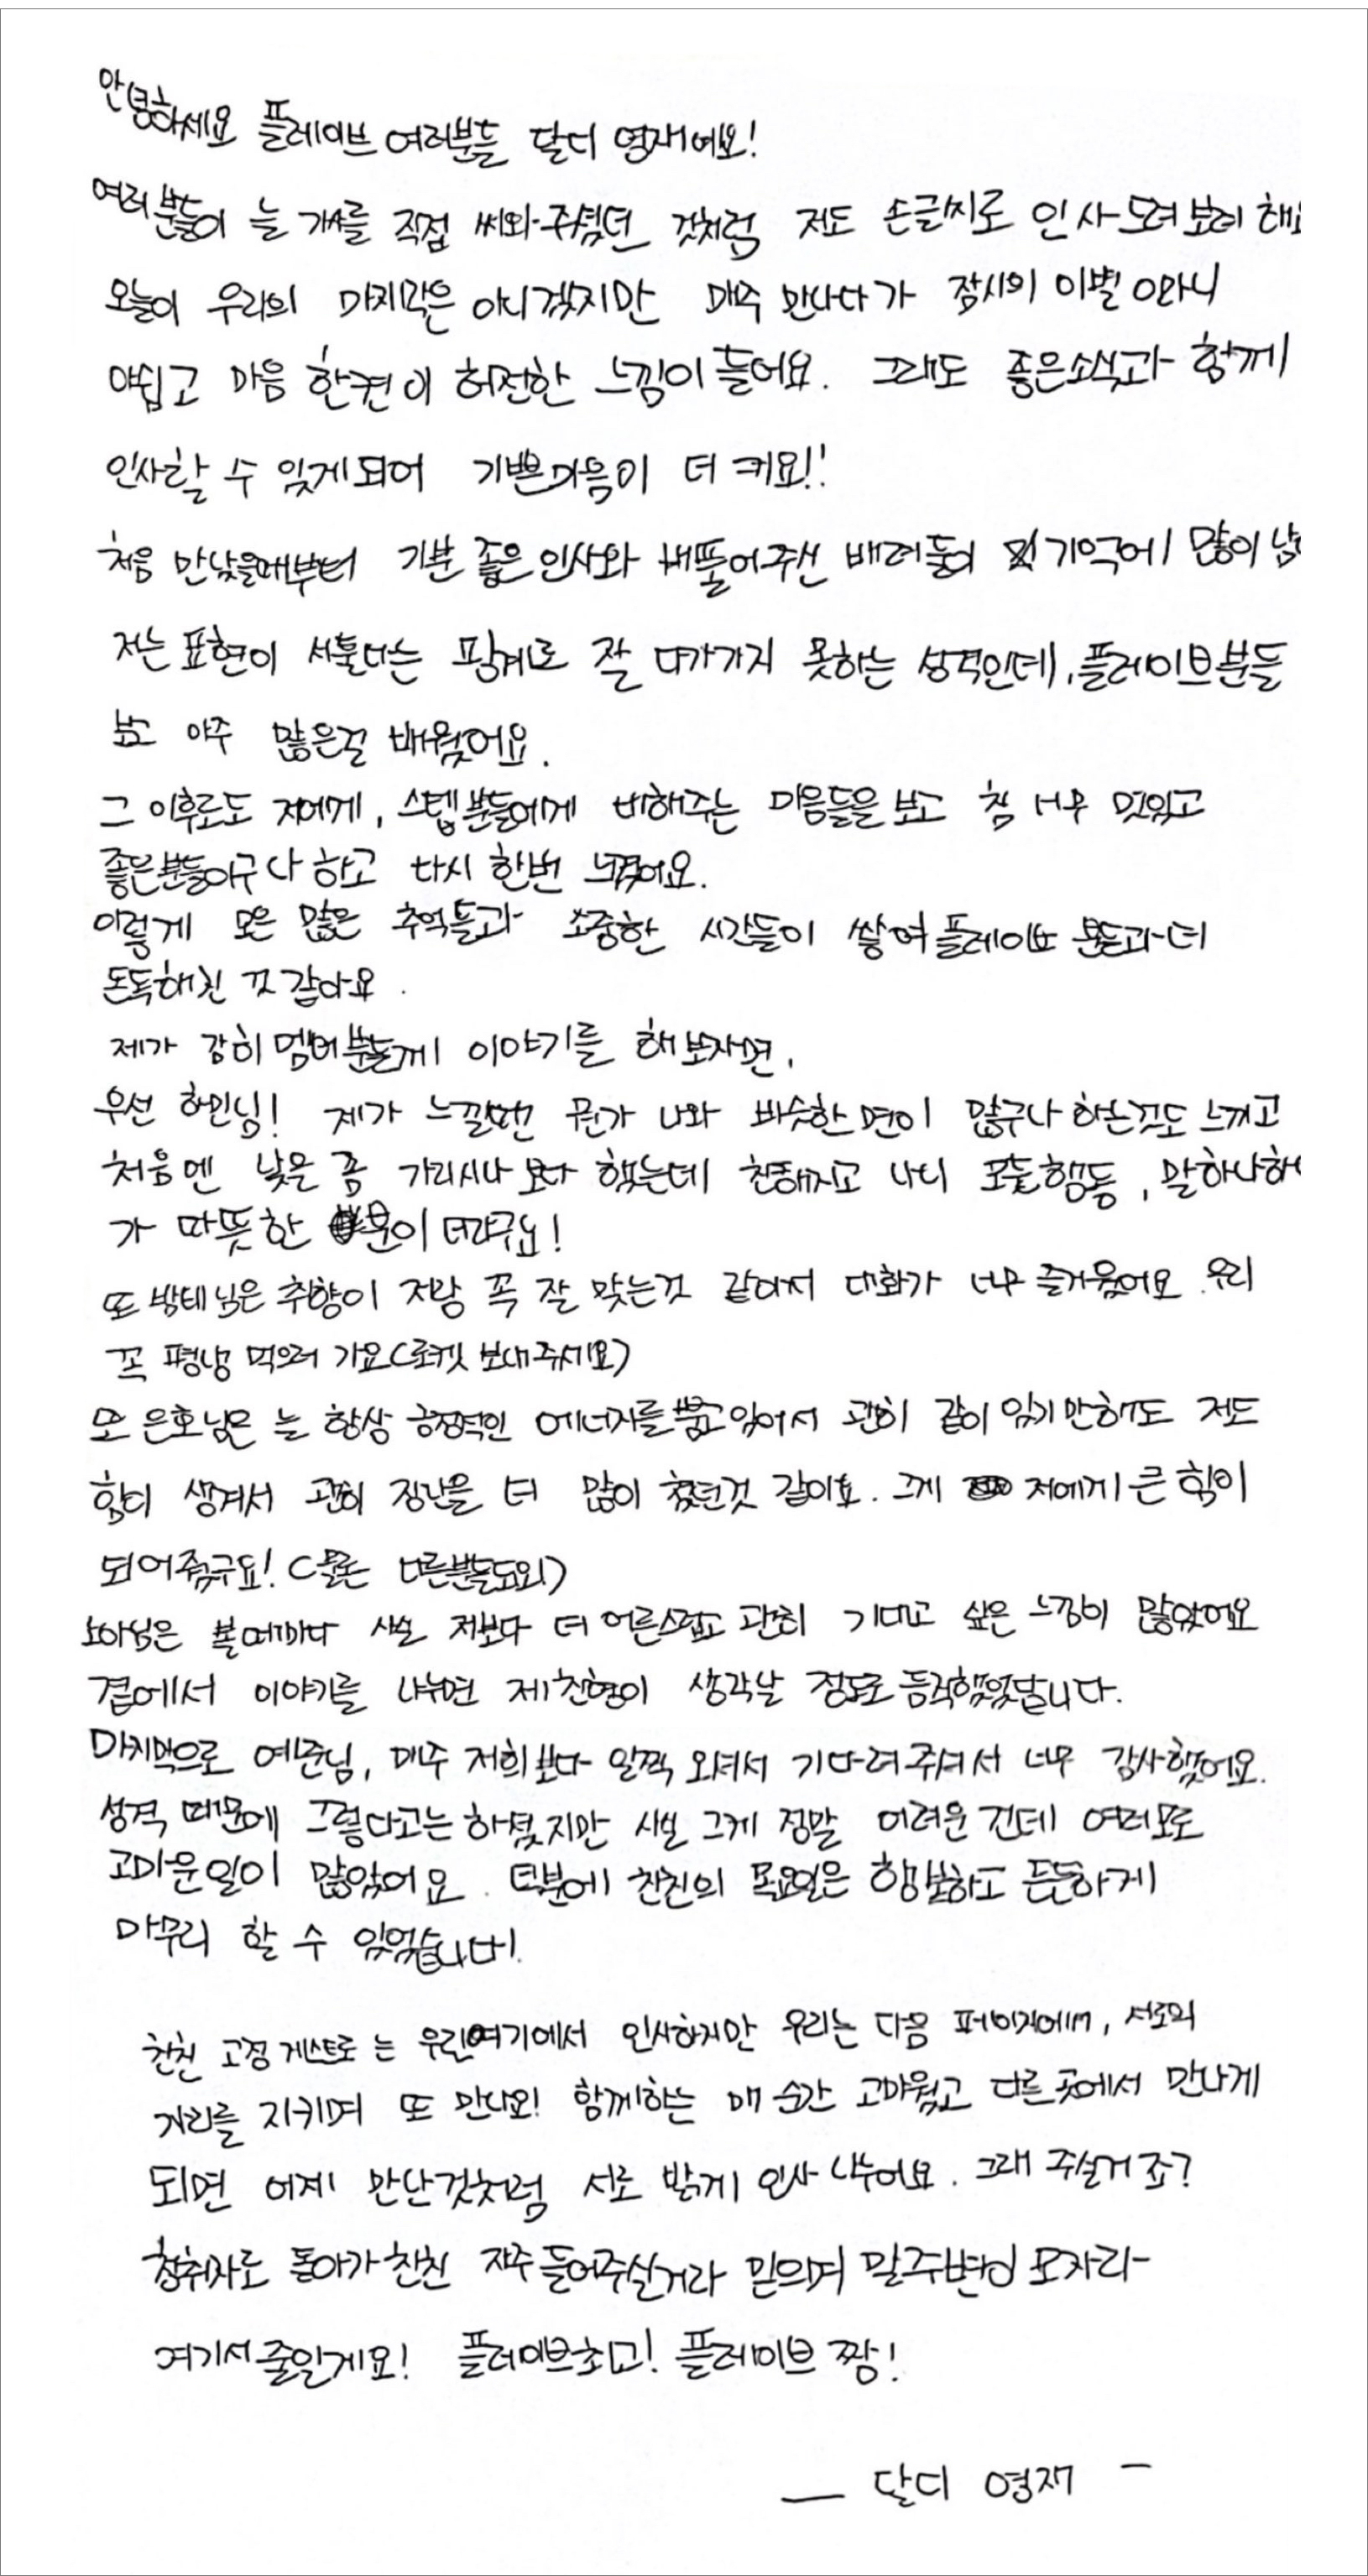 안녕하세요 플레이브 여러분들 달디 영재에요!
여러분들이 늘 가사를 직접 써와주셨던 것처럼 저도 손글씨로 인사드려보려 해요
오늘이 우리의 마지막은 아니겠지만 매주 만나다가 잠시의 이별이라니
아쉽고 마음 한켠이 허전한 느낌이 들어요. 그래도 좋은소식과 함께
인사할 수 있게되어 기쁜마음이 더 커요!!
처음 만났을때부터 기분 좋은 인사와 베풀어주신 배려들이 기억에 많이 남
저는 표현이 서툴다는 핑계로 잘 다가가지 못하는 성격인데, 플레이브분들
보고 아주 많은걸 배웠어요.
그 이후로도 저에게, 스텝분들에게 대해주는 마음들을 보고 참 너무 멋있고
좋은분들이구나 하고 다시 한번 느꼈어요.
이렇게 모은 많은 추억들과 소중한 시간들이 쌓여 플레이브 분들과 더
돈독해진 것 같아요.
제가 감히 멤버분들께 이야기를 해보자면,
우선 하민님! 제가 느낄땐 뭔가 나와 비슷한 면이 많구나 하는것도 느끼고
처음엔 낯은 좀 가리시나 보다 했는데 친해지고 나니 모든 행동, 말하나하나
가 따뜻한 분이더라구요!
또 밤비님은 취향이 저랑 꼭 잘 맞는것 같아서 대화가 너무 즐거웠어요. 우리
꼭 평냉 먹으러 가요(로켓 보내주세요)
또 은호님은 늘 항상 긍정적인 에너지를 뿜고있어서 괜히 같이 있기만해도 저도
힘이 생겨서 괜히 장난을 더 많이 쳤던것 같아요. 그게 저에게 큰 힘이
되어줬구요! (물론 다른분들도요!)
노아님은 볼때마다 사실 저보다 더 어른스럽고 괜히 기대고 싶은 느낌이 많았어요
곁에서 이야기를 나누면 제 친형이 생각날 정도로 듬직했었답니다.
마지막으로 예준님, 매주 저희보다 일찍 오셔서 기다려주셔서 너무 감사했어요.
성격 때문에 그렇다고는 하셨지만 사실 그게 정말 어려운 건데 여러모로
고마운일이 많았어요. 덕분에 친친의 목요일은 행복하고 든든하게
마무리 할 수 있었습니다!
친친 고정 게스트로는 우린여기에서 인사하지만 우리는 다음 페이지에서, 서로의
자리를 지키며 또 만나요! 함께하는 매 순간 고마웠고 다른 곳에서 만나게
되면 어제 만난것처럼 서로 밝게 인사 나누어요. 그래 주실거죠?
청취자로 돌아가 친친 자주 들어주실거라 믿으며 말주변이 모자라
여기서 줄일게요! 플레이브최고! 플레이브 짱!
— 달디 영재 -